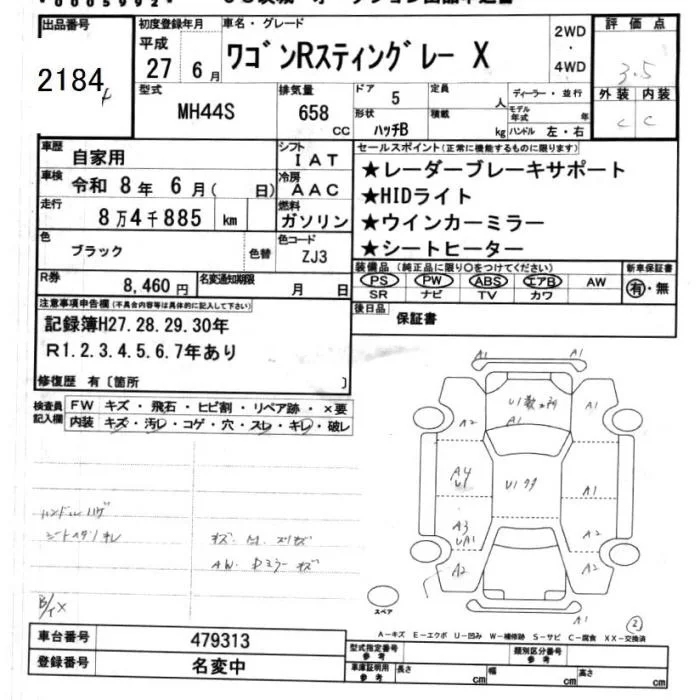 出品番号 初度登録年月 車名・グレード 2WD・4WD 評価点
2184 平成27年6月 ワゴンRスティングレー X 3.5
型式 MH44S 排気量 658 CC ドア 5 定員 人 ディーラー・並行 外装 内装
形状 ハッチB 積載 kg モデル年式 年 ハンドル 左・右 C C
車歴 自家用 シフト IAT セールスポイント(正常に機能するものに限ります)
車検 令和 8年 6月( 日) 冷房 AAC ★レーダーブレーキサポート
走行 8万4千885 km 燃料 ガソリン ★HIDライト
★ウインカーミラー
色 ブラック 色替 色コード ZJ3 ★シートヒーター
R券 8,460円 名変通知期限 月 日 装備品(純正品に限り○をつけてください) 新車保証書
PS PW ABS エアB AW 有・無
SR ナビ TV カワ
注意事項申告欄(不具合内容等は具体的に記入して下さい) 後日品 保証書
記録簿H27.28.29.30年
R1.2.3.4.5.6.7年あり
修復歴 有〔箇所 〕
検査員記入欄 FW キズ・飛石・ヒビ割・リペア跡・×要
内装 キズ・汚レ・コゲ・穴・スレ・キレ・破レ
A1 A1
U1 A1
A2 A1
A4 U1 U1 A1
A3 A2
UA1
A2 A2
ハンドルハゲ
シートヘタリキレ
AW. Dミラーキズ
スペア
A1
2
A-キズ E-エクボ U-凹み W-補修跡 S-サビ C-腐食 XX-交換済
車台番号 479313 型式指定番号 参考 類別区分番号 参考
登録番号 名変中 車庫証明用 参考 長さ cm 幅 cm 高さ cm